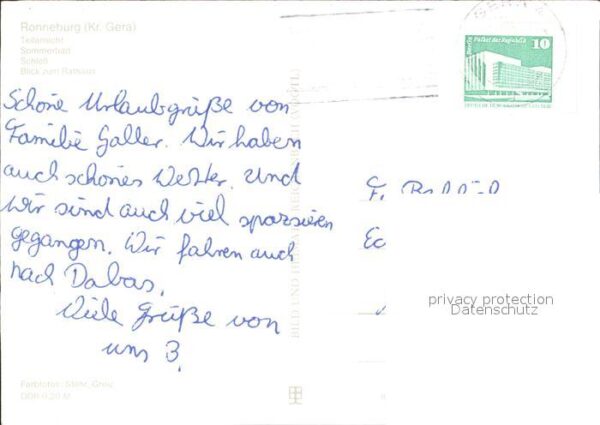 Ronneburg (Kr. Gera)
Teilansicht
Sommerbad
Schloß
Blick zum Rathaus
Schöne Urlaubsgrüße von
Familie Galler. Wir haben
auch schönes Wetter. Und
wir sind auch viel sparsieren
gegangen. Wir fahren auch
nach Dabas.
Viele Grüße von
uns 3.
Farbfotos: Stehr, Greiz
DDR 0,20 M
BILD UND HEIMAT
Berlin Palast der Republik
10
privacy protection
Datenschutz